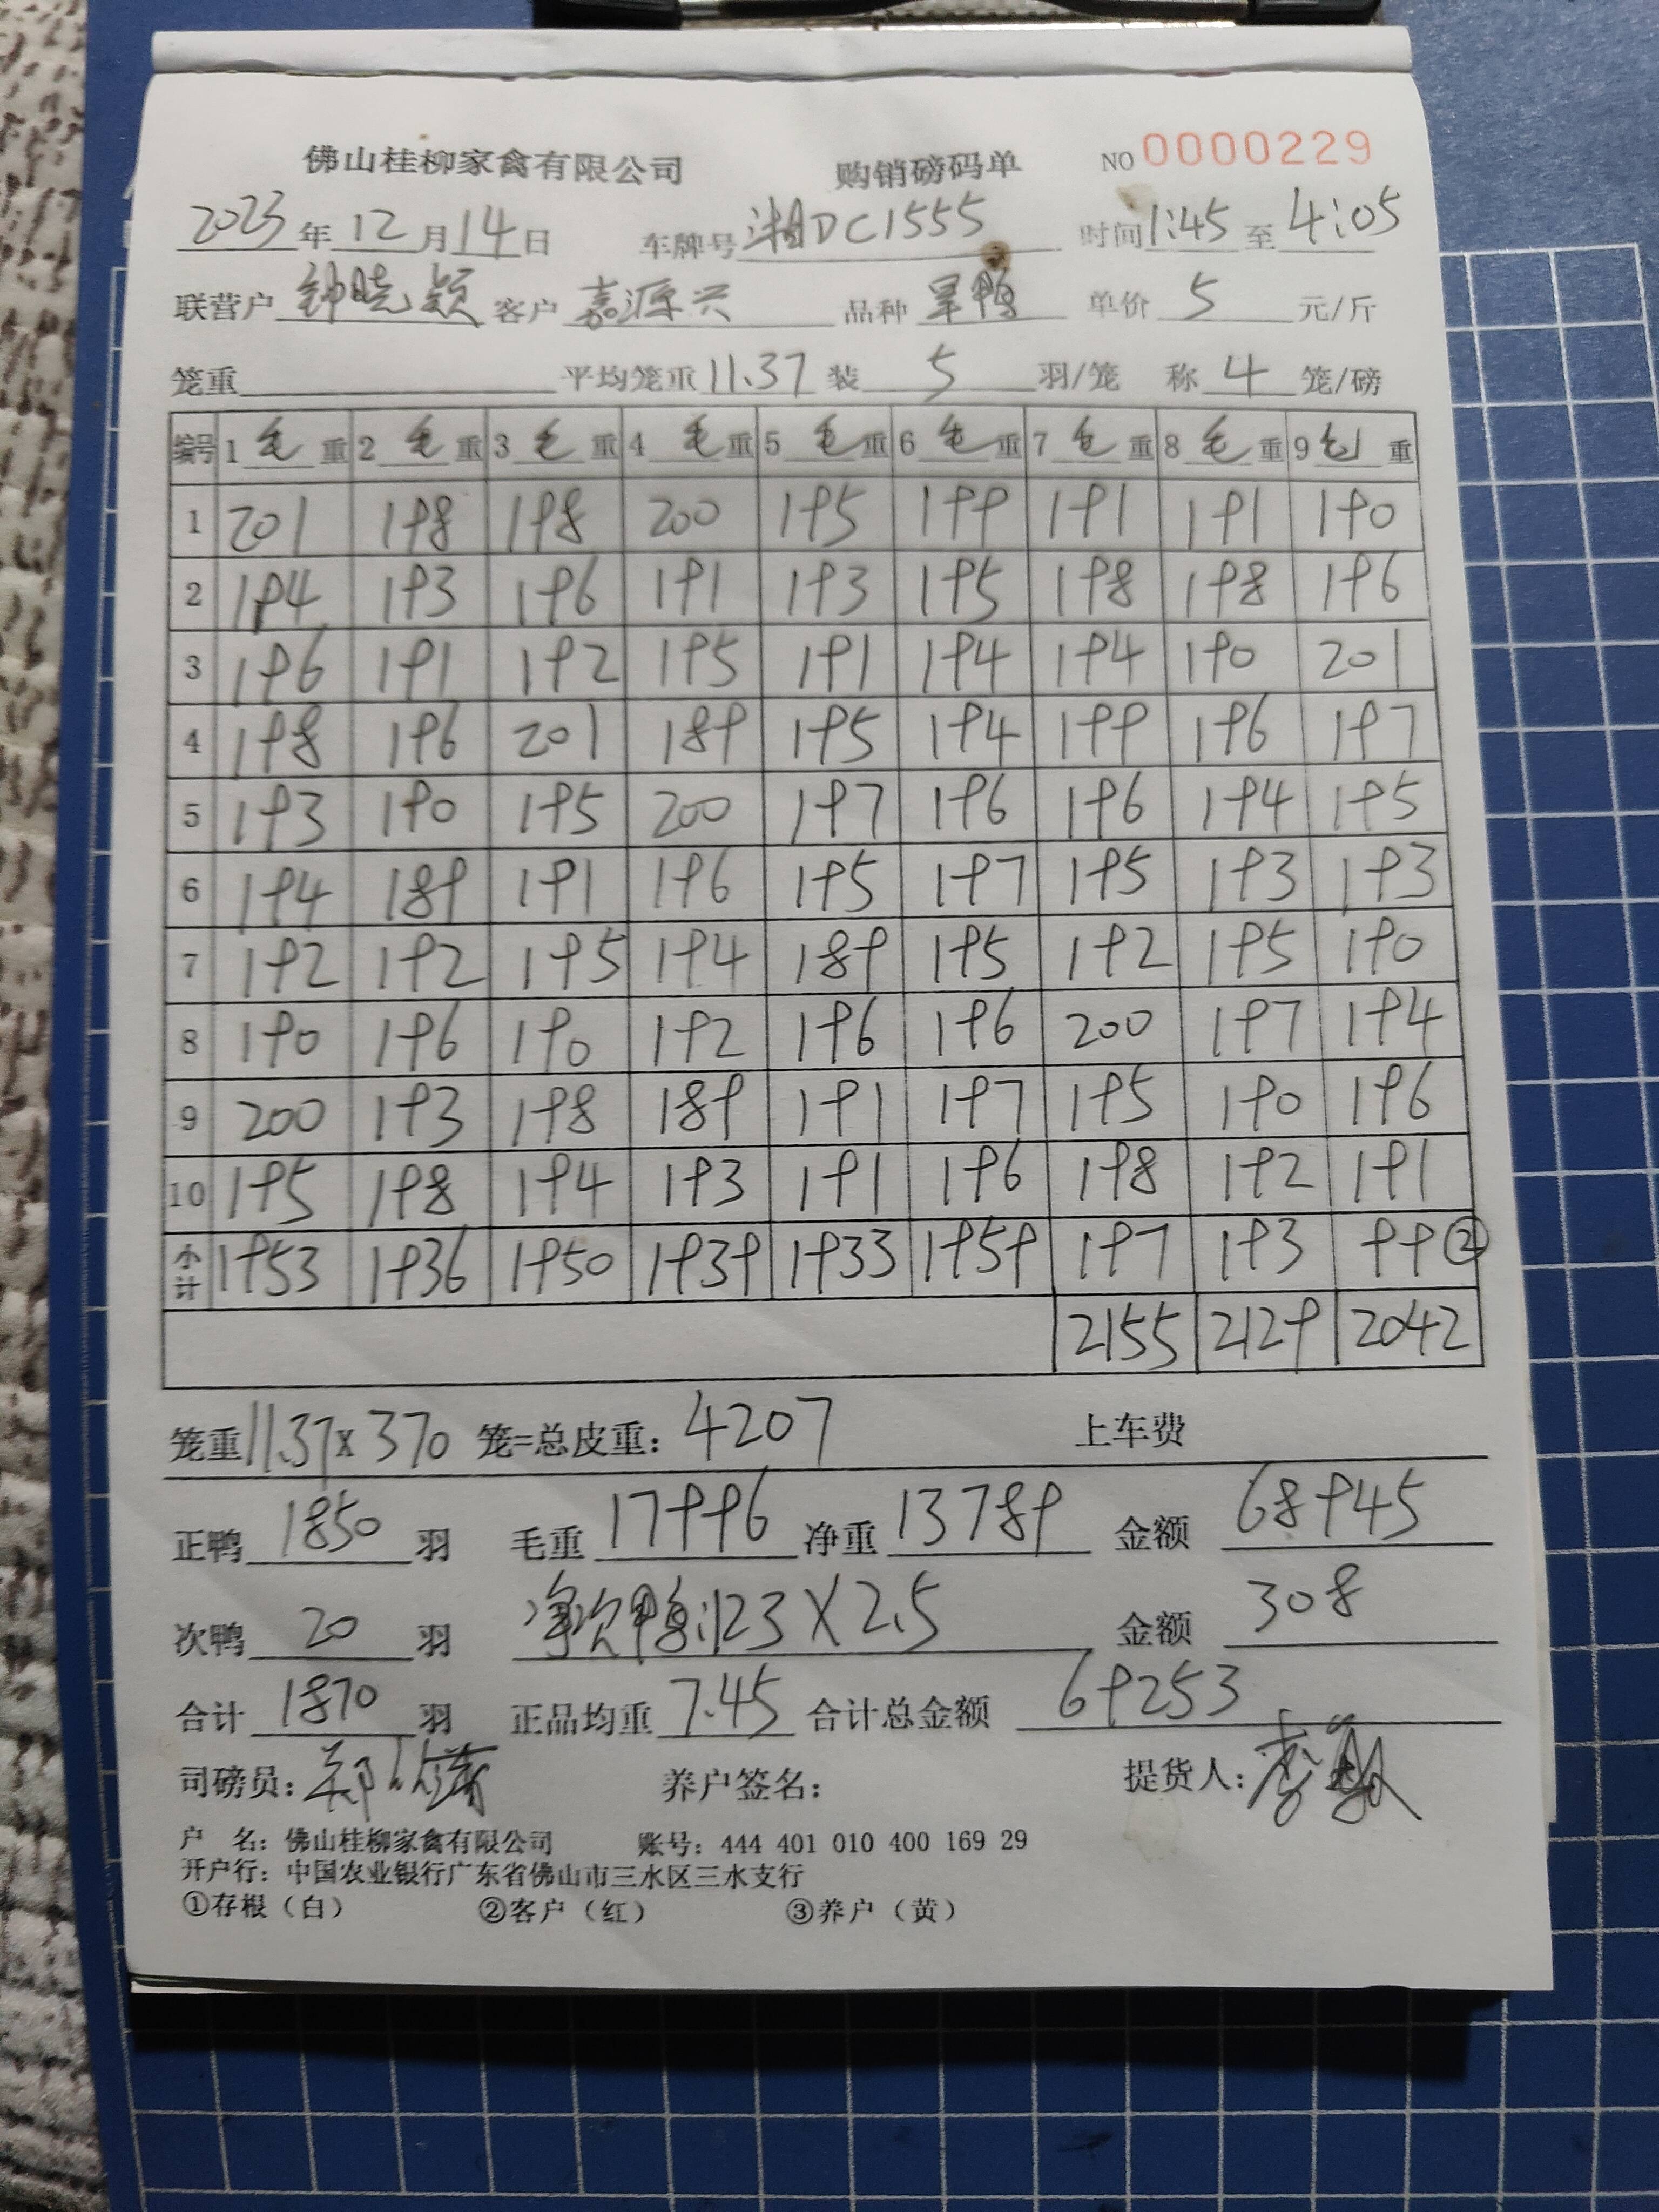 佛山桂柳家禽有限公司 购销磅码单 NO 0000229
2023年12月14日 车牌号 湘DC1555 时间 1:45 至 4:05
联营户 钟晓颖 客户 嘉源兴 品种 旱鸭 单价 5 元/斤
笼重 平均笼重 11.37 装 5 羽/笼 称 4 笼/磅
编号 1 毛重 2 毛重 3 毛重 4 毛重 5 毛重 6 毛重 7 毛重 8 毛重 9 毛重
1 201 198 198 200 195 199 191 191 190
2 194 193 196 191 193 195 198 198 196
3 196 191 192 195 191 194 194 190 201
4 198 196 201 189 195 194 199 196 197
5 193 190 195 200 197 196 196 194 195
6 194 189 191 196 195 197 195 193 193
7 192 192 195 194 189 195 192 195 190
8 190 196 190 192 196 196 200 197 194
9 200 193 198 189 191 197 195 190 196
10 195 198 194 193 191 196 198 192 191
小计 1953 1936 1950 1939 1933 1959 197 193 99②
2155 2129 2042
笼重 11.37 x 370 笼=总皮重: 4207 上车费
正鸭 1850 羽 毛重 17996 净重 13789 金额 68945
次鸭 20 羽 净次鸭:123 X 2.5 金额 308
合计 1870 羽 正品均重 7.45 合计总金额 69253
司磅员: 养户签名: 提货人:
户 名: 佛山桂柳家禽有限公司 账号: 444 401 010 400 169 29
开户行: 中国农业银行广东省佛山市三水区三水支行
①存根(白) ②客户(红) ③养户(黄)